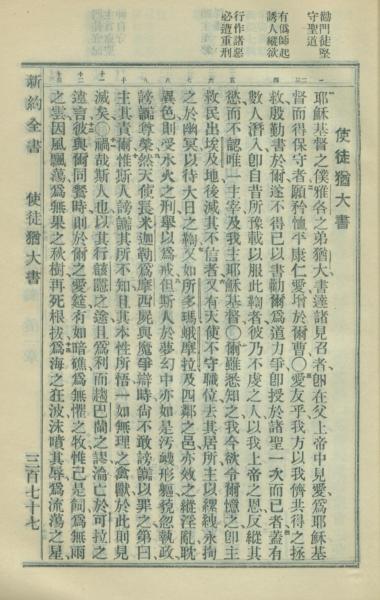 勸門徒堅
守聖道
有僞師起
誘人縱欲
行作諸惡
必遭重刑
使徒猶大書
耶穌基督之僕雅各之弟猶大書達諸見召者卽在父上帝中見愛爲耶穌基
督而得保守者願矜恤平康仁愛增於爾曹〇愛友乎我方以我儕共得之拯
救殷勤書於爾遂不得已以書勸爾爲道力爭卽授於諸聖一次而已者蓋有
數人潛入卽自昔所豫載以服此鞫者彼乃不虔之人以我上帝之恩反縱其
慾而不認唯一主宰及我主耶穌基督〇爾雖悉知之我今欲令爾憶之卽主
救民出埃及地後滅其不信者又有天使不守職位去其居所主以縲絏永拘
之於幽冥以待大日之鞫又如所多瑪蛾摩拉及四鄰之邑亦效之縱淫亂耽
異色則受永火之刑舉以爲戒但斯人於夢幻中亦如是汚衊形軀藐忽執政
謗讟尊榮然天使長米迦勒爲摩西屍與魔爭辯時尚不敢謗讟以罪之第曰
主其責爾惟斯人謗讟其所不知且其本性所悟一如無理之禽獸於此則見
滅矣〇禍哉斯人也以其行該隱之途且爲利而趨巴蘭之謬淪亡於可拉之
違言彼與爾同讌時則於爾之愛筵有如暗礁爲無懼之牧惟己是飼爲無雨
之雲因風飄蕩爲無果之秋樹再死根拔爲海之狂波沫噴其辱爲流蕩之星
新約全書
使徒猶大書
三百七十七